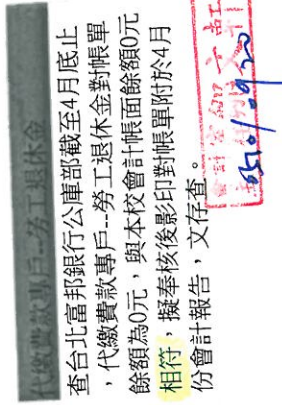 代繳費款專戶--勞工退休金
查台北富邦銀行公庫部截至4月底止
，代繳費款專戶--勞工退休金對帳單
餘額為0元，與本校會計帳面餘額0元
相符，擬奉核後影印對帳單附於4月
份會計報告，文存查。